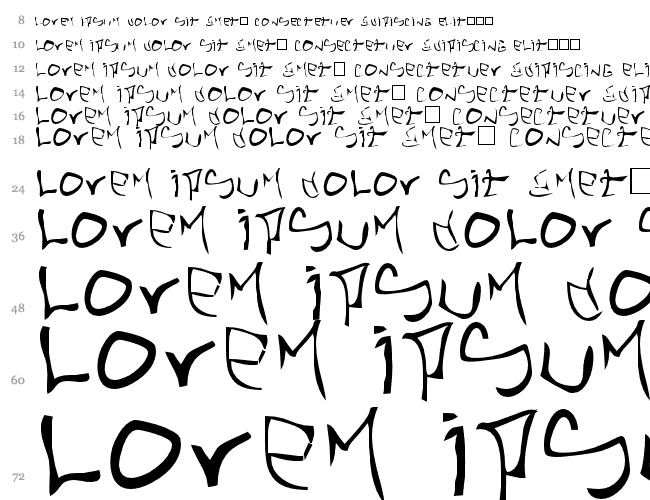 8 Lorem ipsum dolor sit amet□ consectetuer adipiscing elit□□□
10 Lorem ipsum dolor sit amet□ consectetuer adipiscing elit□□□
12 Lorem ipsum dolor sit amet□ consectetuer adipiscing eli
14 Lorem ipsum dolor sit amet□ consectetuer adip
16 Lorem ipsum dolor sit amet□ consectetuer
18 Lorem ipsum dolor sit amet□ consecte
24 Lorem ipsum dolor sit amet□
36 Lorem ipsum dolor s
48 Lorem ipsum do
60 Lorem ipsum
72 Lorem ipsu